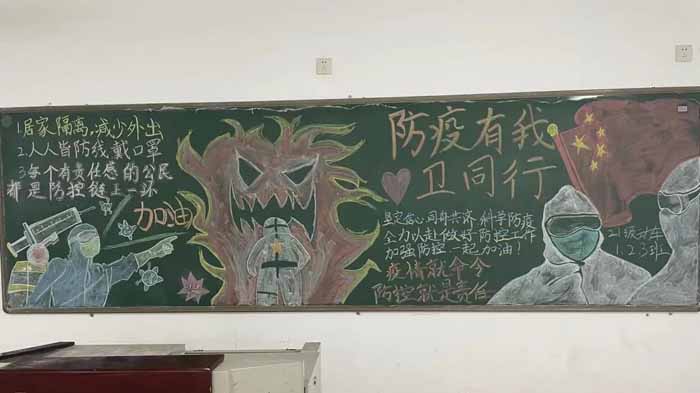 1.居家隔离,减少外出
2.人人皆防线,戴口罩
3.每个有责任感的公民
都是防控链上一环
加油
防疫有我
卫同行
坚定信心 同舟共济 科学防疫
全力以赴做好防控工作
加强防控一起加油!
疫情就是命令
防控就是责任
21级
1.2.3班